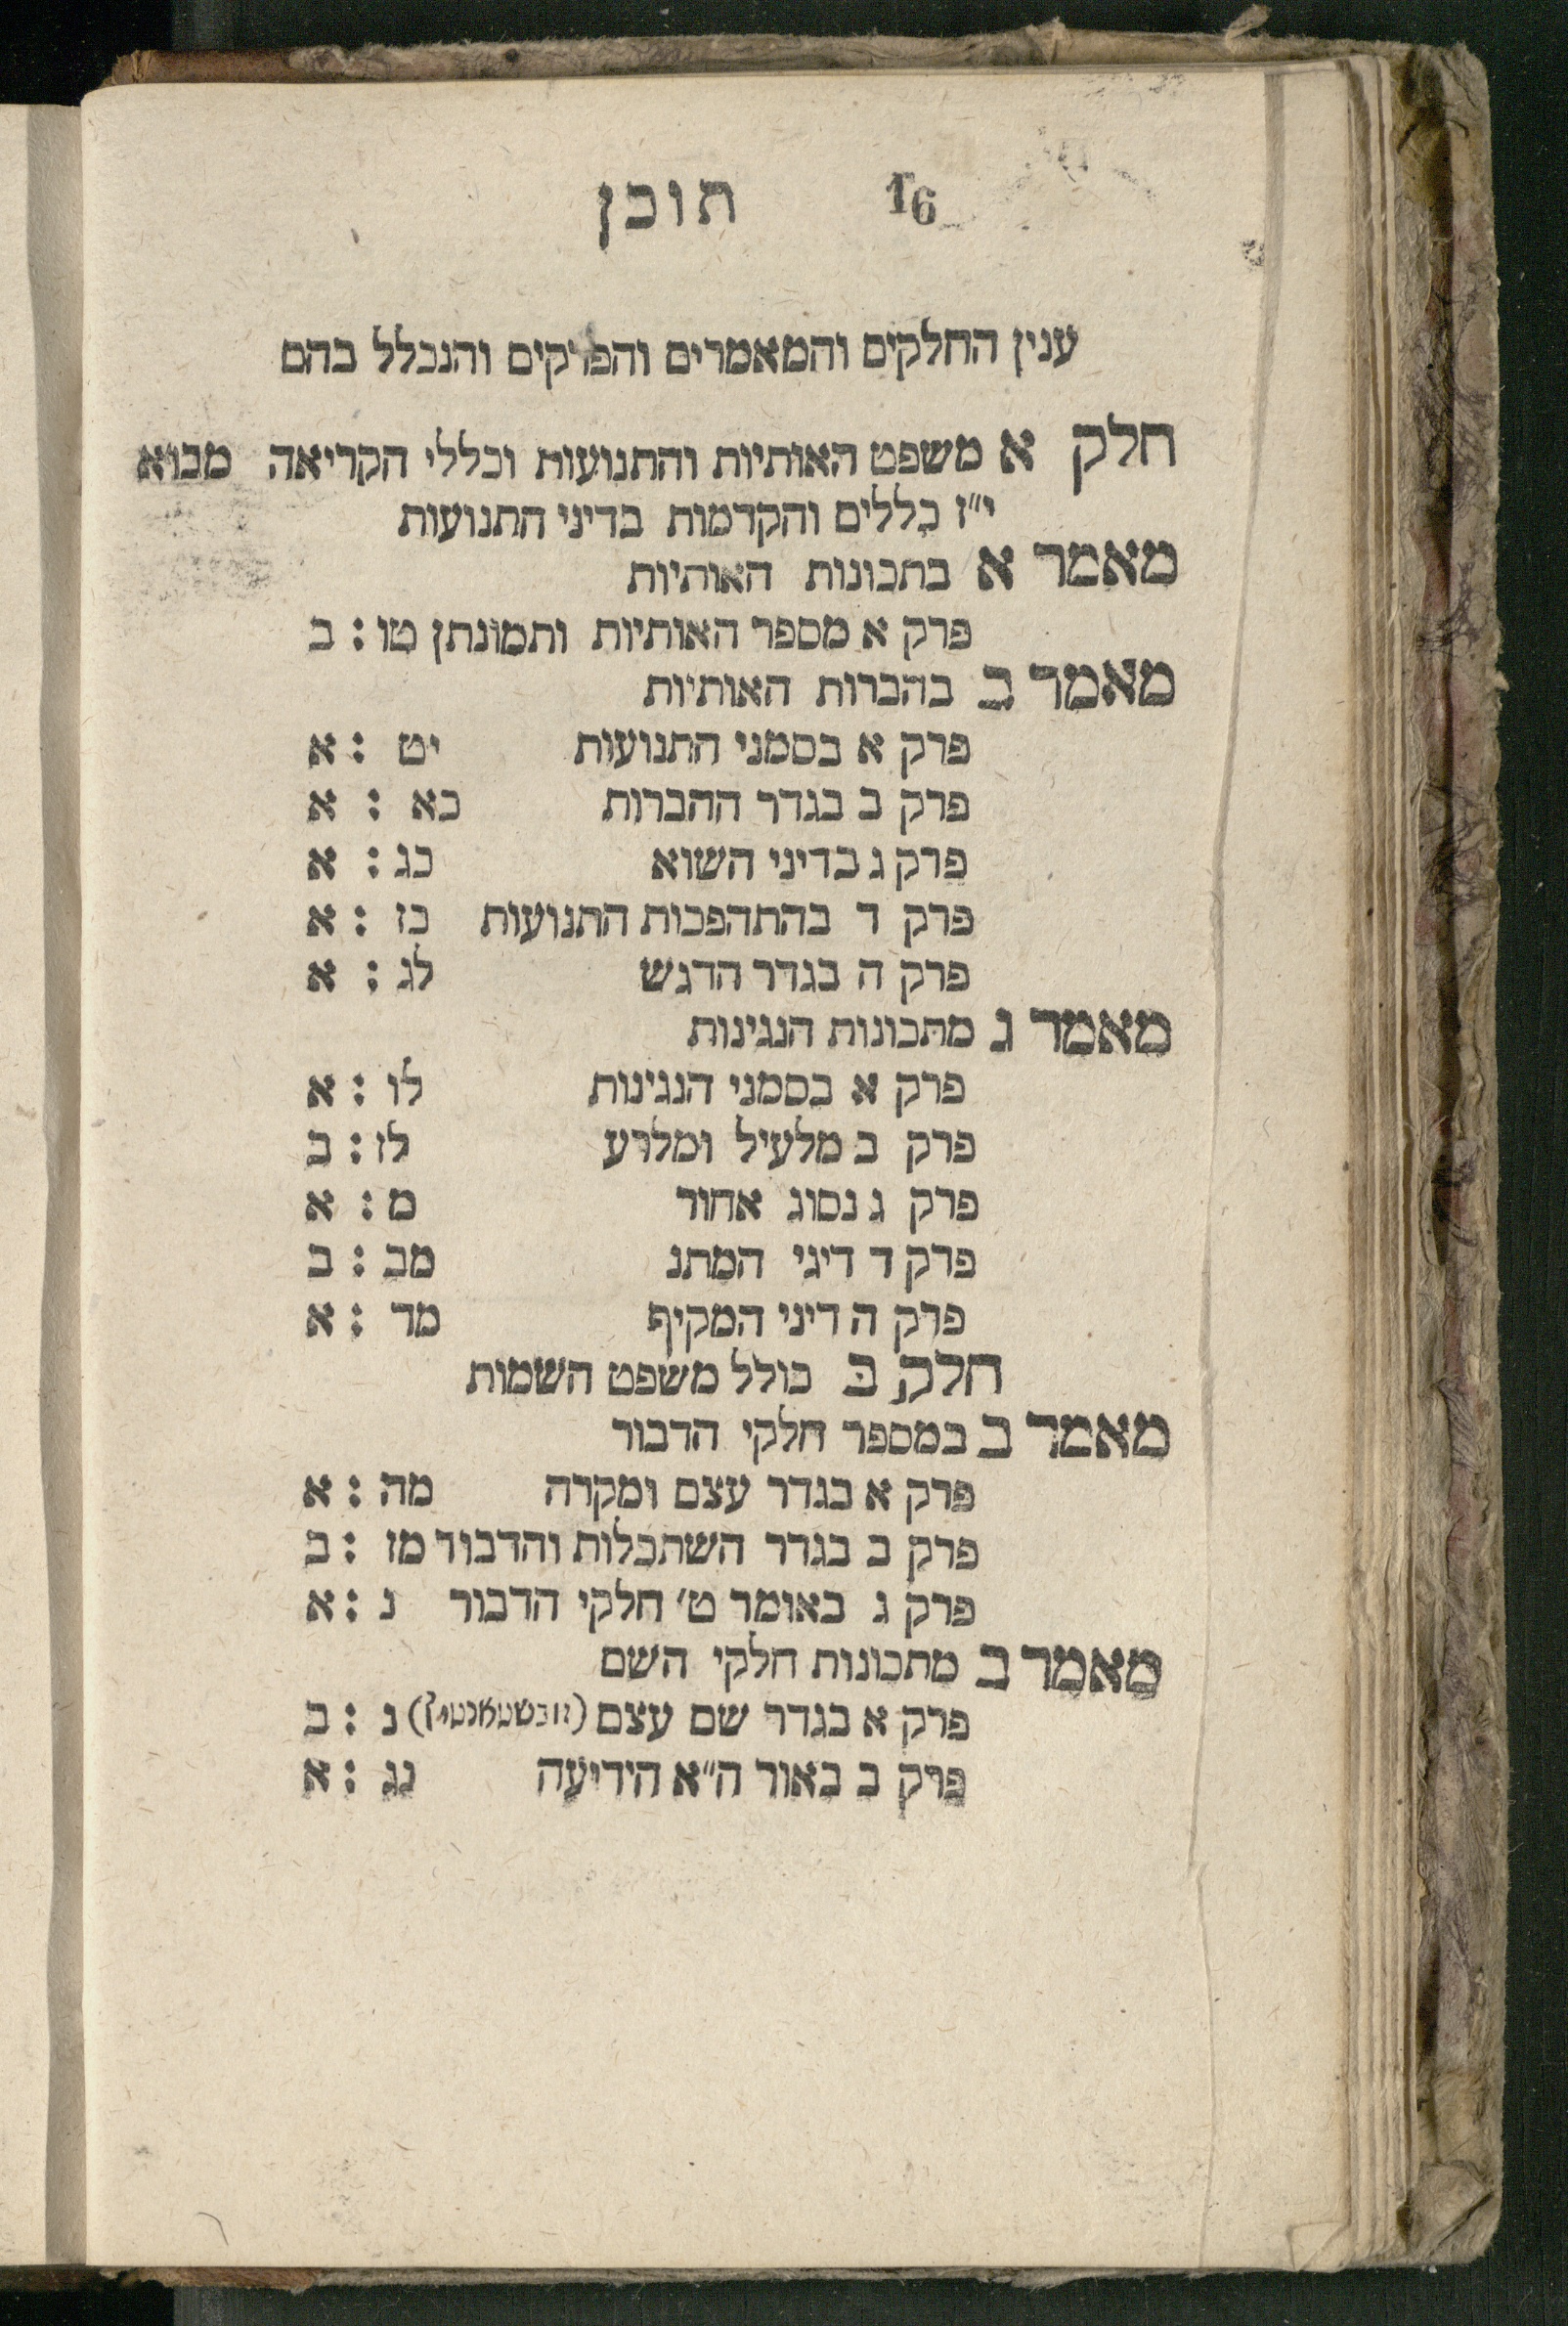 16 תוכן
ענין החלקים והמאמרים והפרקים והנכלל בהם
חלק א משפט האותיות והתנועות וכללי הקריאה מבוא
י״ז כללים והקדמות בדיני התנועות
מאמר א בתכונות האותיות
פרק א מספר האותיות ותמונתן טו : ב
מאמר ב בהברות האותיות
פרק א בסמני התנועות יט : א
פרק ב בגדר ההברות כא : א
פרק ג בדיני השוא כג : א
פרק ד בהתהפכות התנועות כז : א
פרק ה בגדר הדגש לג : א
מאמר ג מתכונות הנגינות
פרק א בסמני הנגינות לו : א
פרק ב מלעיל ומלרע לז : ב
פרק ג נסוג אחור מ : א
פרק ד דיני המתג מב : ב
פרק ה דיני המקיף מד : א
חלק ב כולל משפט השמות
מאמר ב במספר חלקי הדבור
פרק א בגדר עצם ומקרה מה : א
פרק ב בגדר השתכלות והדבור מז : ב
פרק ג באומר ט׳ חלקי הדבור נ : א
מאמר ב מתכונות חלקי השם
פרק א בגדר שם עצם (זובשטאנטיף) נ : ב
פרק ב באור ה״א הידיעה נג : א